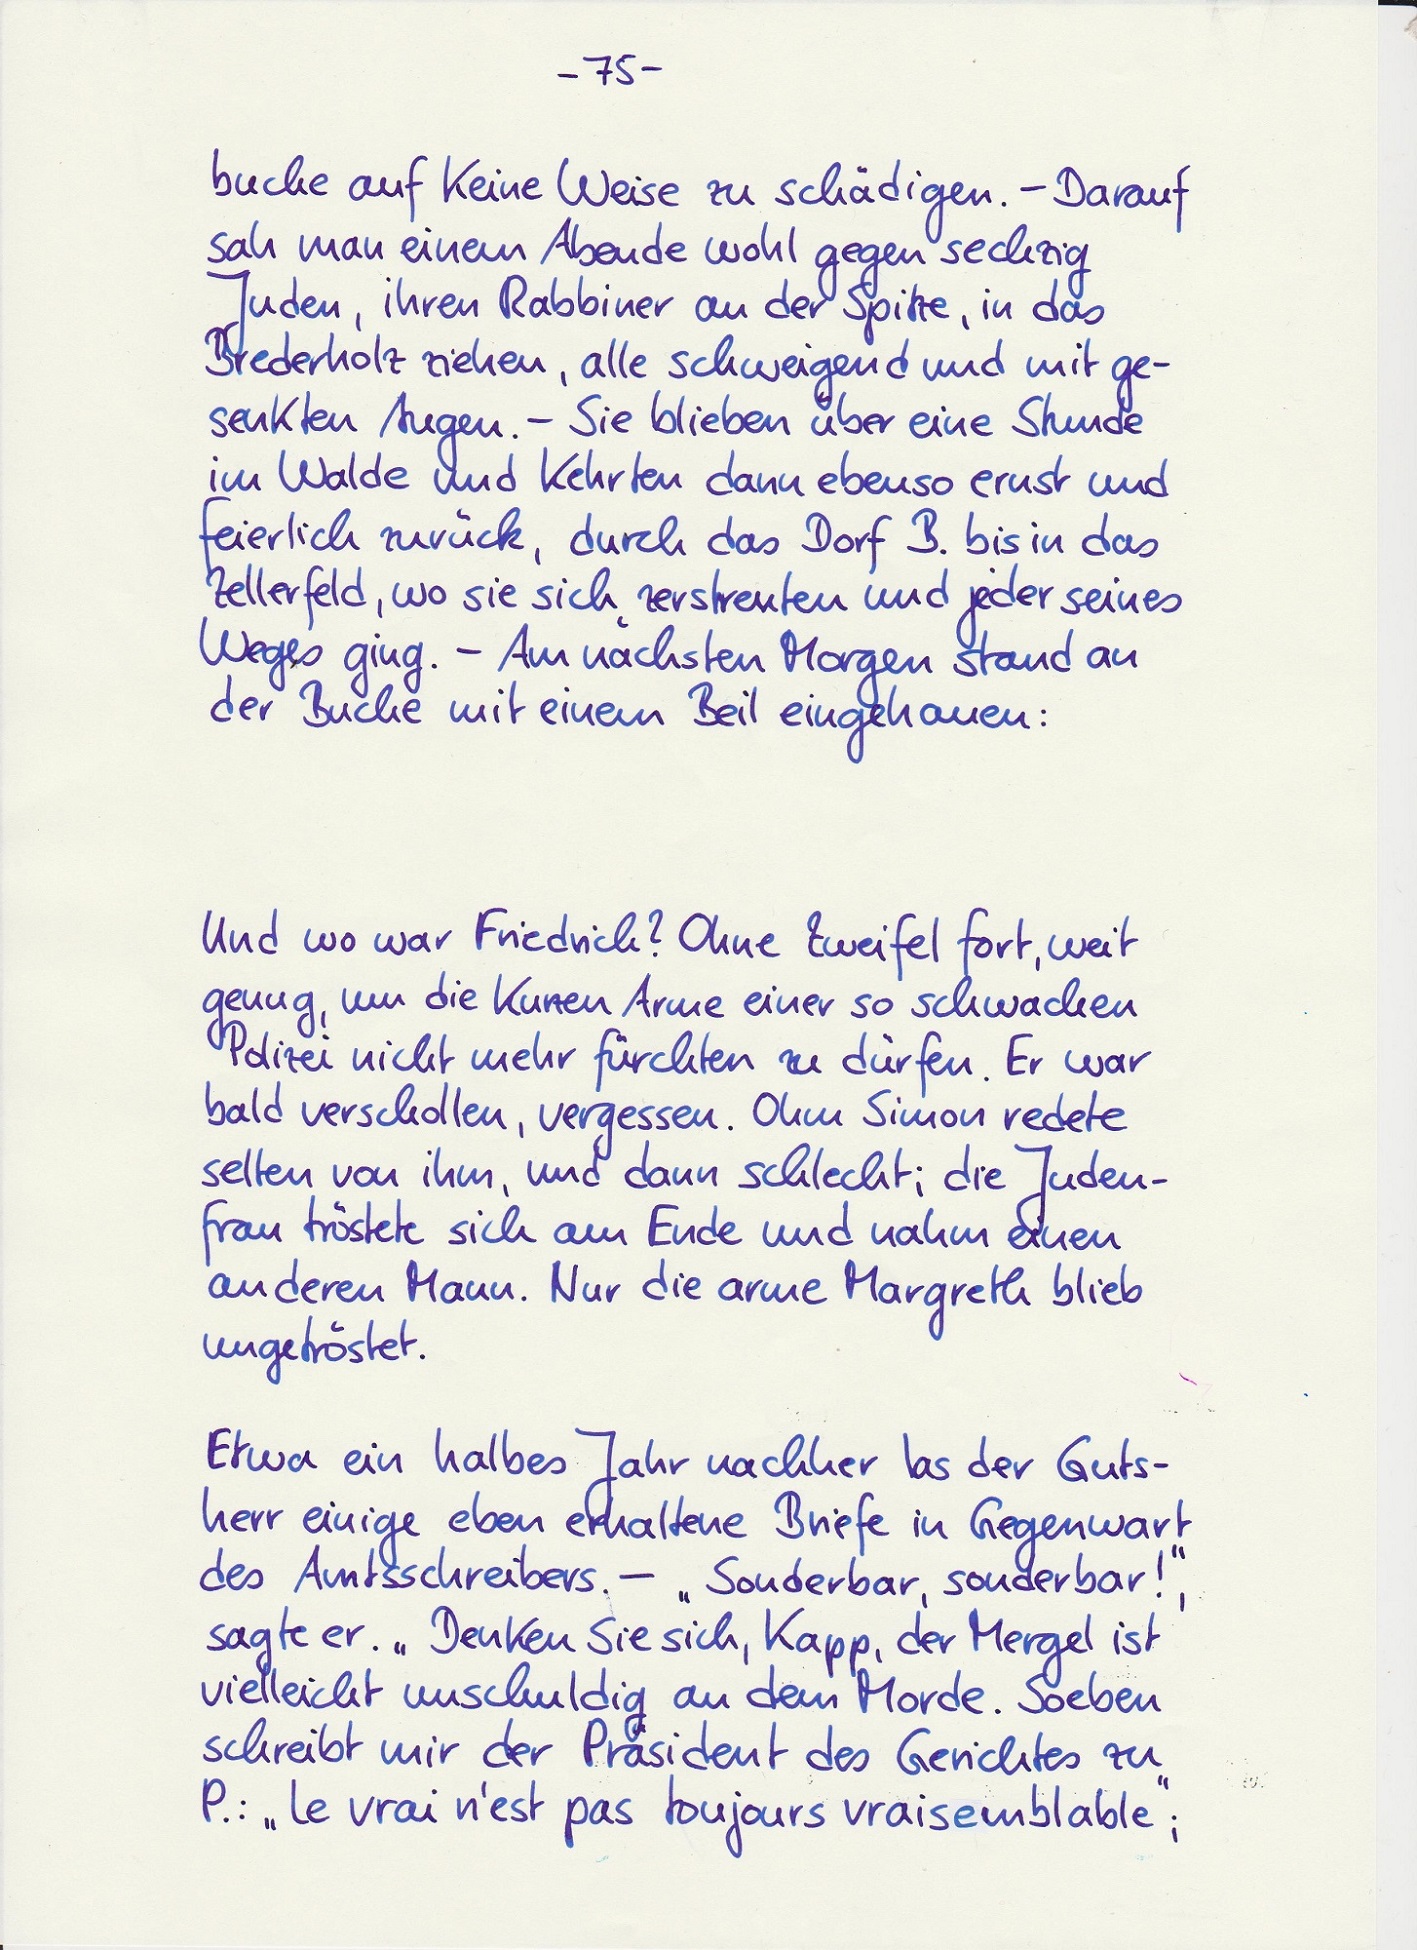 -75-
buche auf keine Weise zu schädigen. – Darauf
sah man einem Abende wohl gegen sechzig
Juden, ihren Rabbiner an der Spitze, in das
Brederholz ziehen, alle schweigend und mit ge-
senkten Augen. – Sie blieben über eine Stunde
im Walde und kehrten dann ebenso ernst und
feierlich zurück, durch das Dorf B. bis in das
Zellerfeld, wo sie sich zerstreuten und jeder seines
Weges ging. – Am nächsten Morgen stand an
der Buche mit einem Beil eingehauen:
Und wo war Friedrich? Ohne Zweifel fort, weit
genug, um die kurzen Arme einer so schwachen
Polizei nicht mehr fürchten zu dürfen. Er war
bald verschollen, vergessen. Ohm Simon redete
selten von ihm, und dann schlecht; die Juden-
frau tröstete sich am Ende und nahm einen
anderen Mann. Nur die arme Margreth blieb
ungetröstet.
Etwa ein halbes Jahr nachher las der Guts-
herr einige eben erhaltene Briefe in Gegenwart
des Amtsschreibers. – „Sonderbar, sonderbar!“,
sagte er. „Denken Sie sich, Kapp, der Mergel ist
vielleicht unschuldig an dem Morde. Soeben
schreibt mir der Präsident des Gerichtes zu
P.: „le vrai n'est pas toujours vraisemblable“;